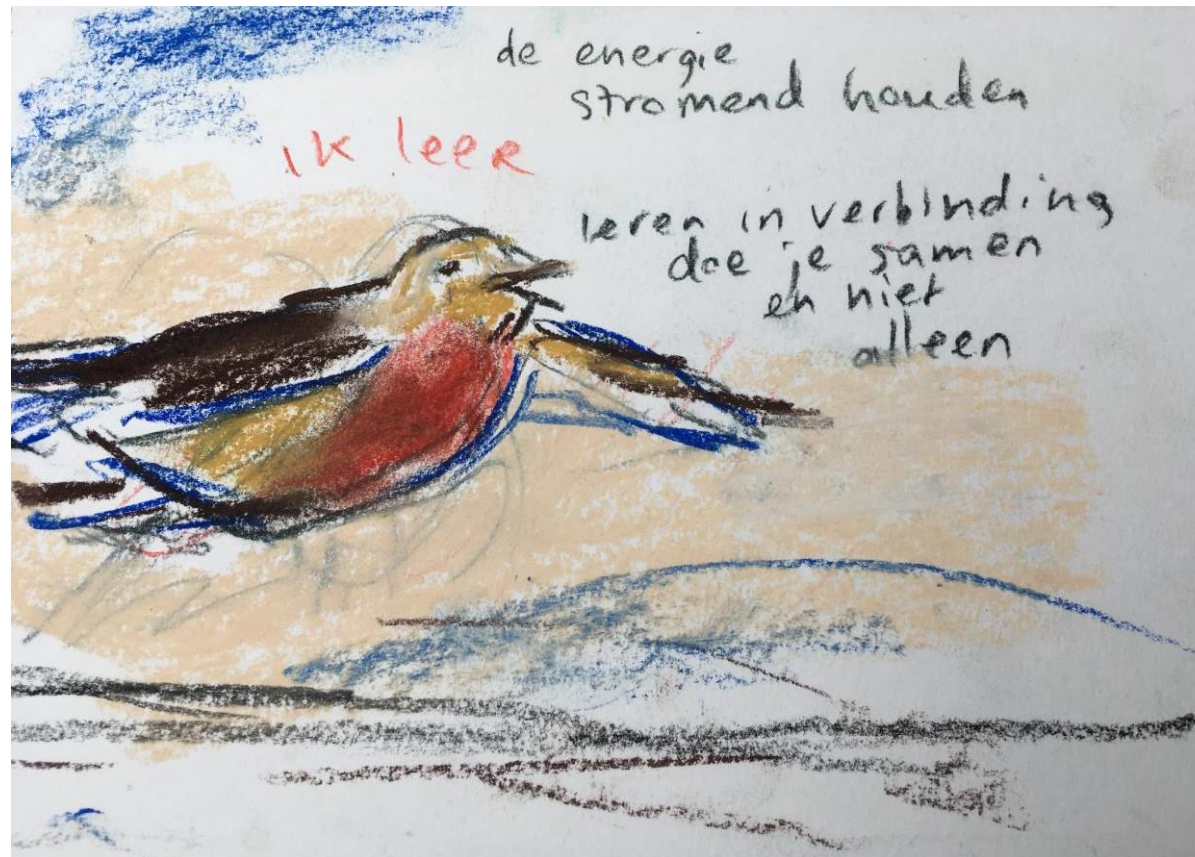 de energie
stromend houden
ik leer
leren in verbinding
doe je samen
en niet
alleen